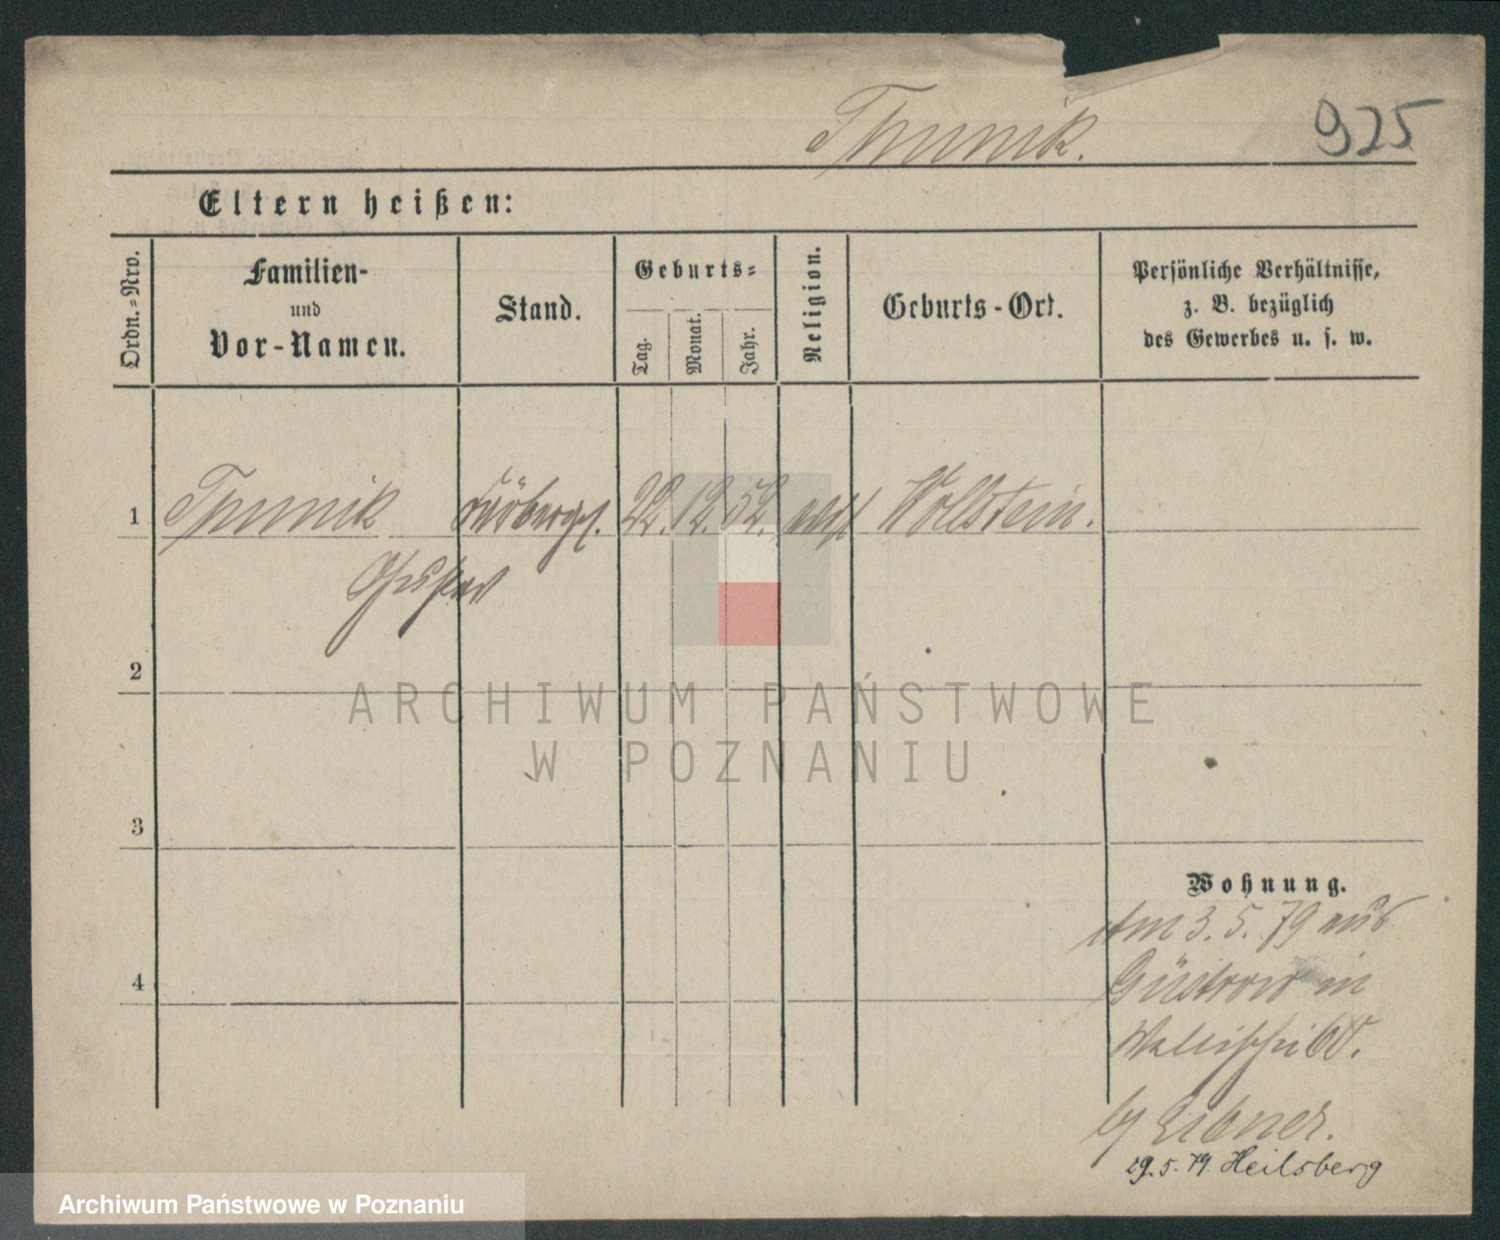 Thunik.
925
Eltern heißen:
Ordn.-Nro.
Familien-
und
Vor-Namen.
Stand.
Geburts-
Tag.
Monat.
Jahr.
Religion.
Geburts-Ort.
Persönliche Verhältnisse,
z. B. bezüglich
des Gewerbes u. s. w.
1
22. 12. 52.
Wollstein.
Gustav
2
3
4
Wohnung.
Am 3. 5. 79 aus
Güstrow in
Wallischei
29. 5. 79. Heilsberg
ARCHIWUM PAŃSTWOWE
W POZNANIU
Archiwum Państwowe w Poznaniu